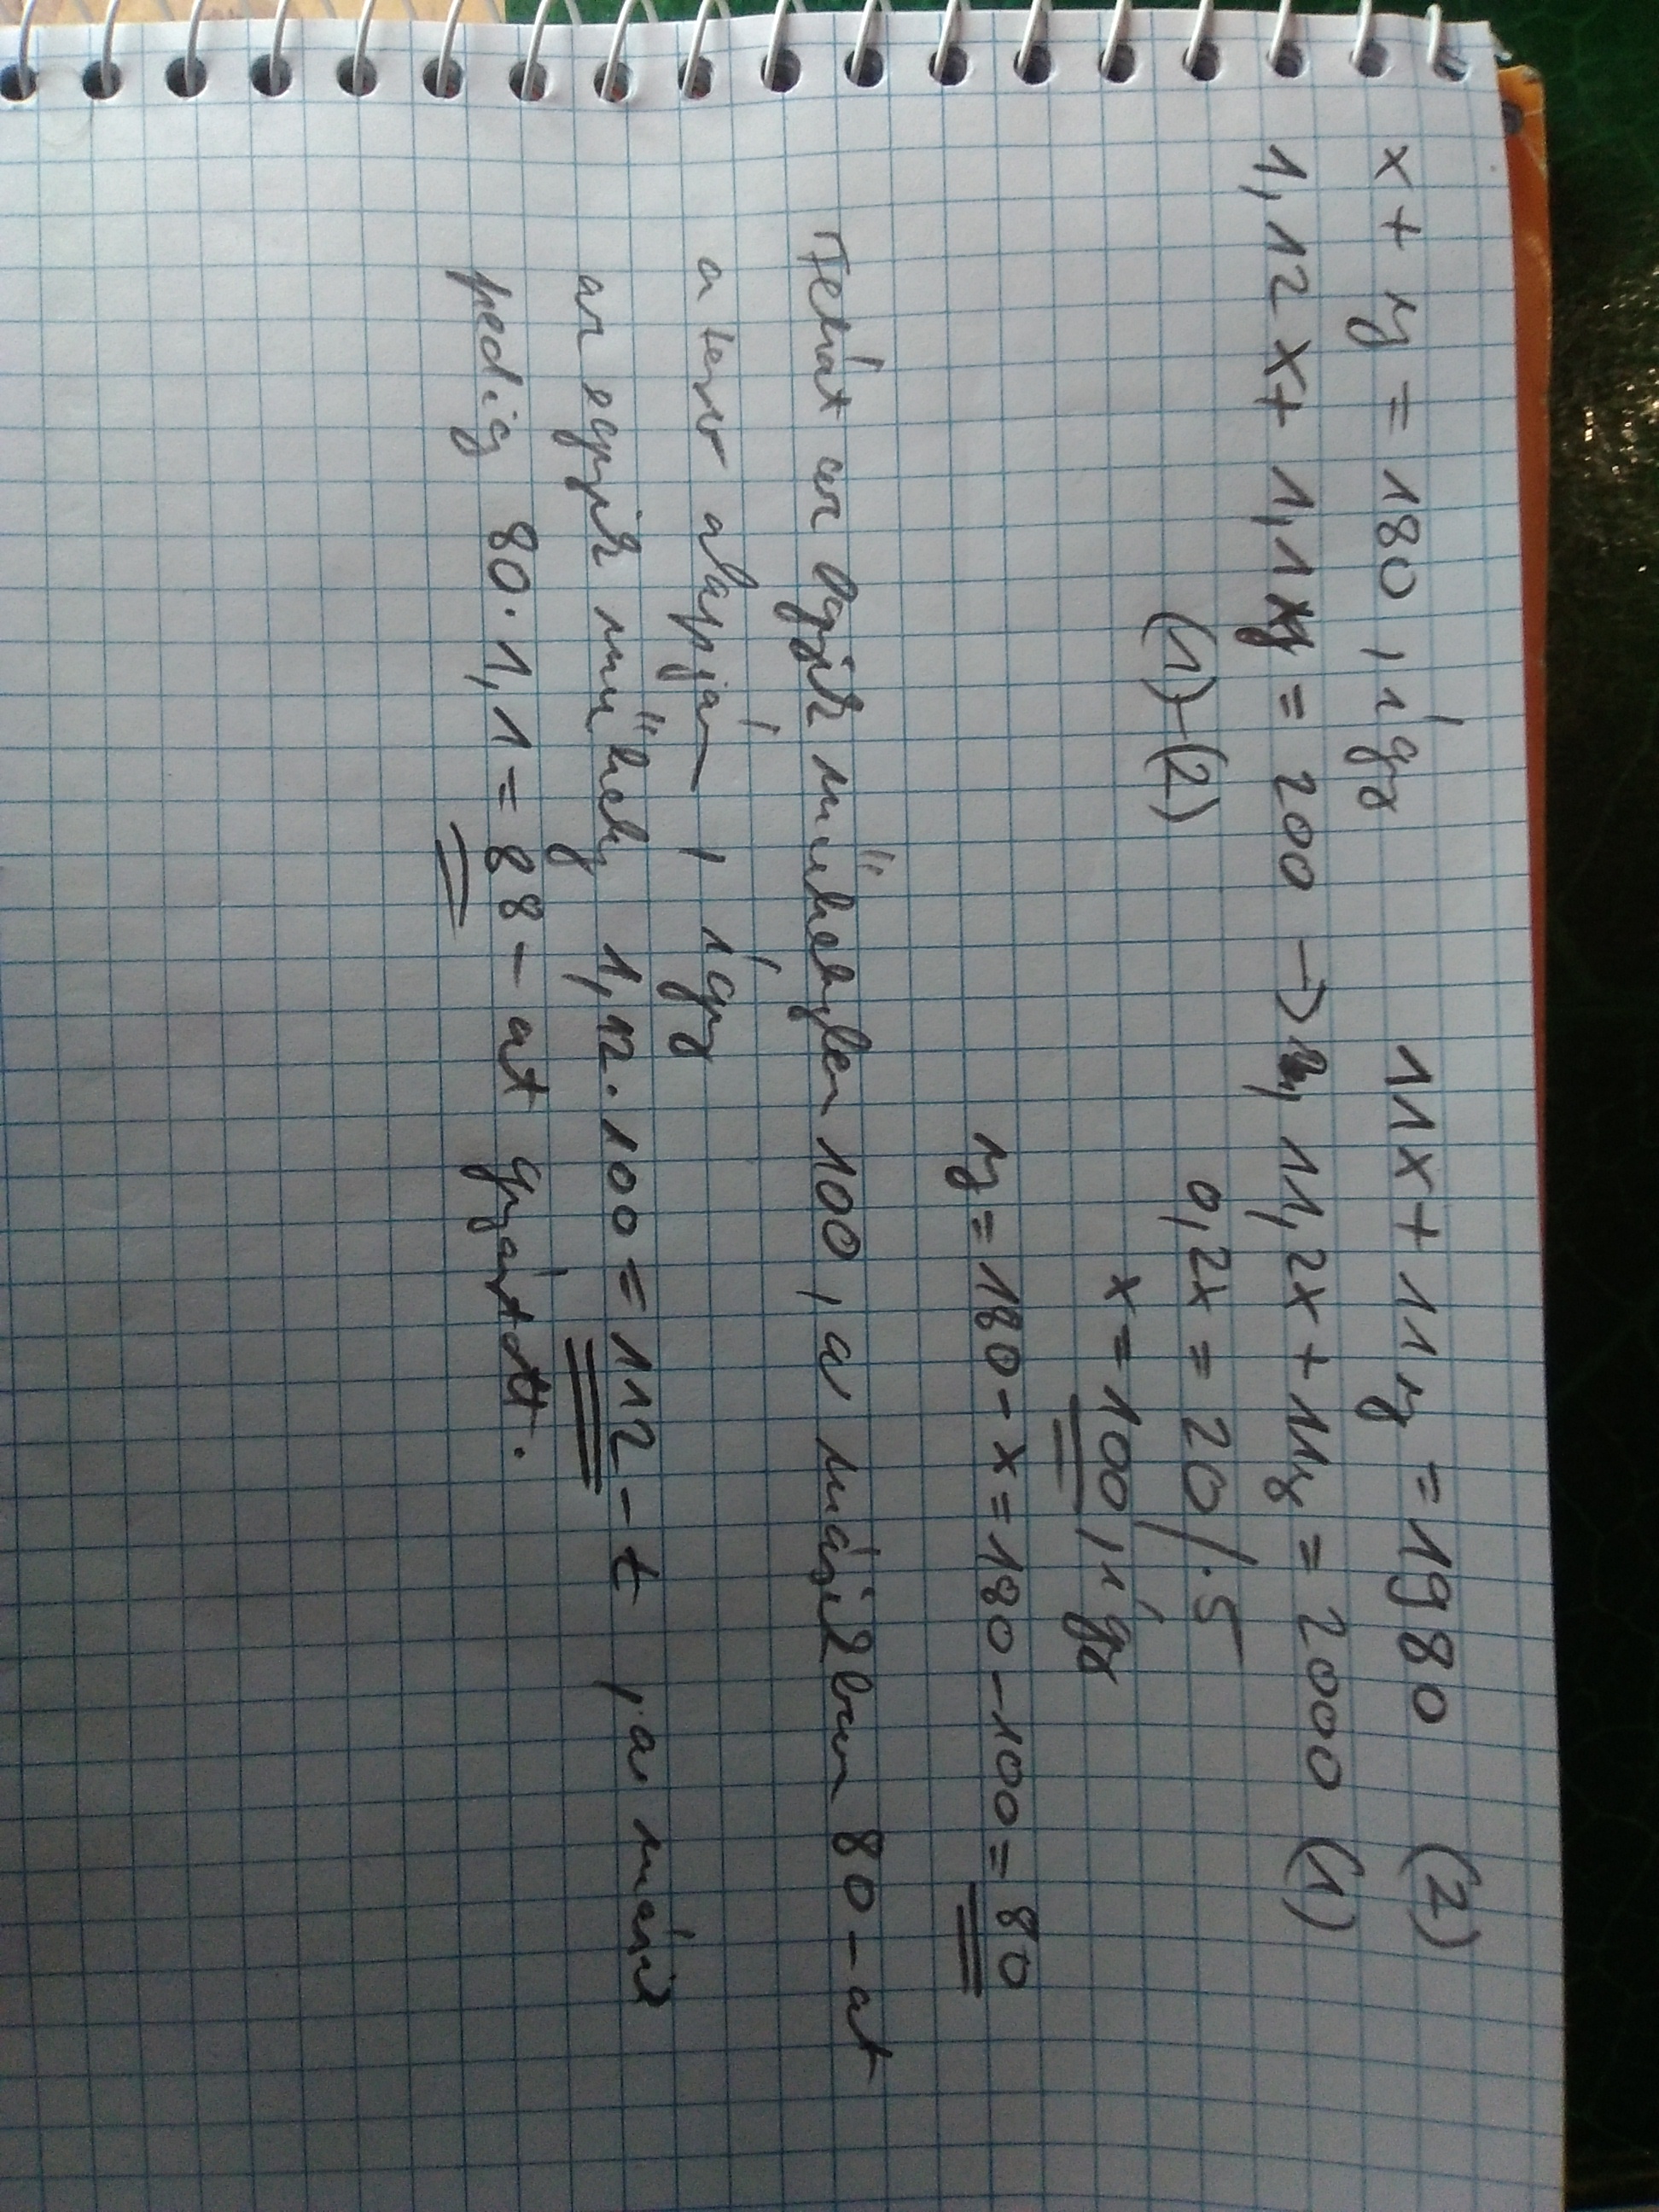 x + y = 180, így 11x + 11y = 1980 (2)
1,12x + 1,1y = 200 → 11,2x + 11y = 2000 (1)
(1)-(2) 0,2x = 20 /·5
x = 100, így
y = 180 - x = 180 - 100 = 80
Tehát az egyik műhelyben 100, a másikban 80-at
a terv alapján, így
az egyik műhely 1,12·100 = 112-t, a másik
pedig 80·1,1 = 88-at gyártott.